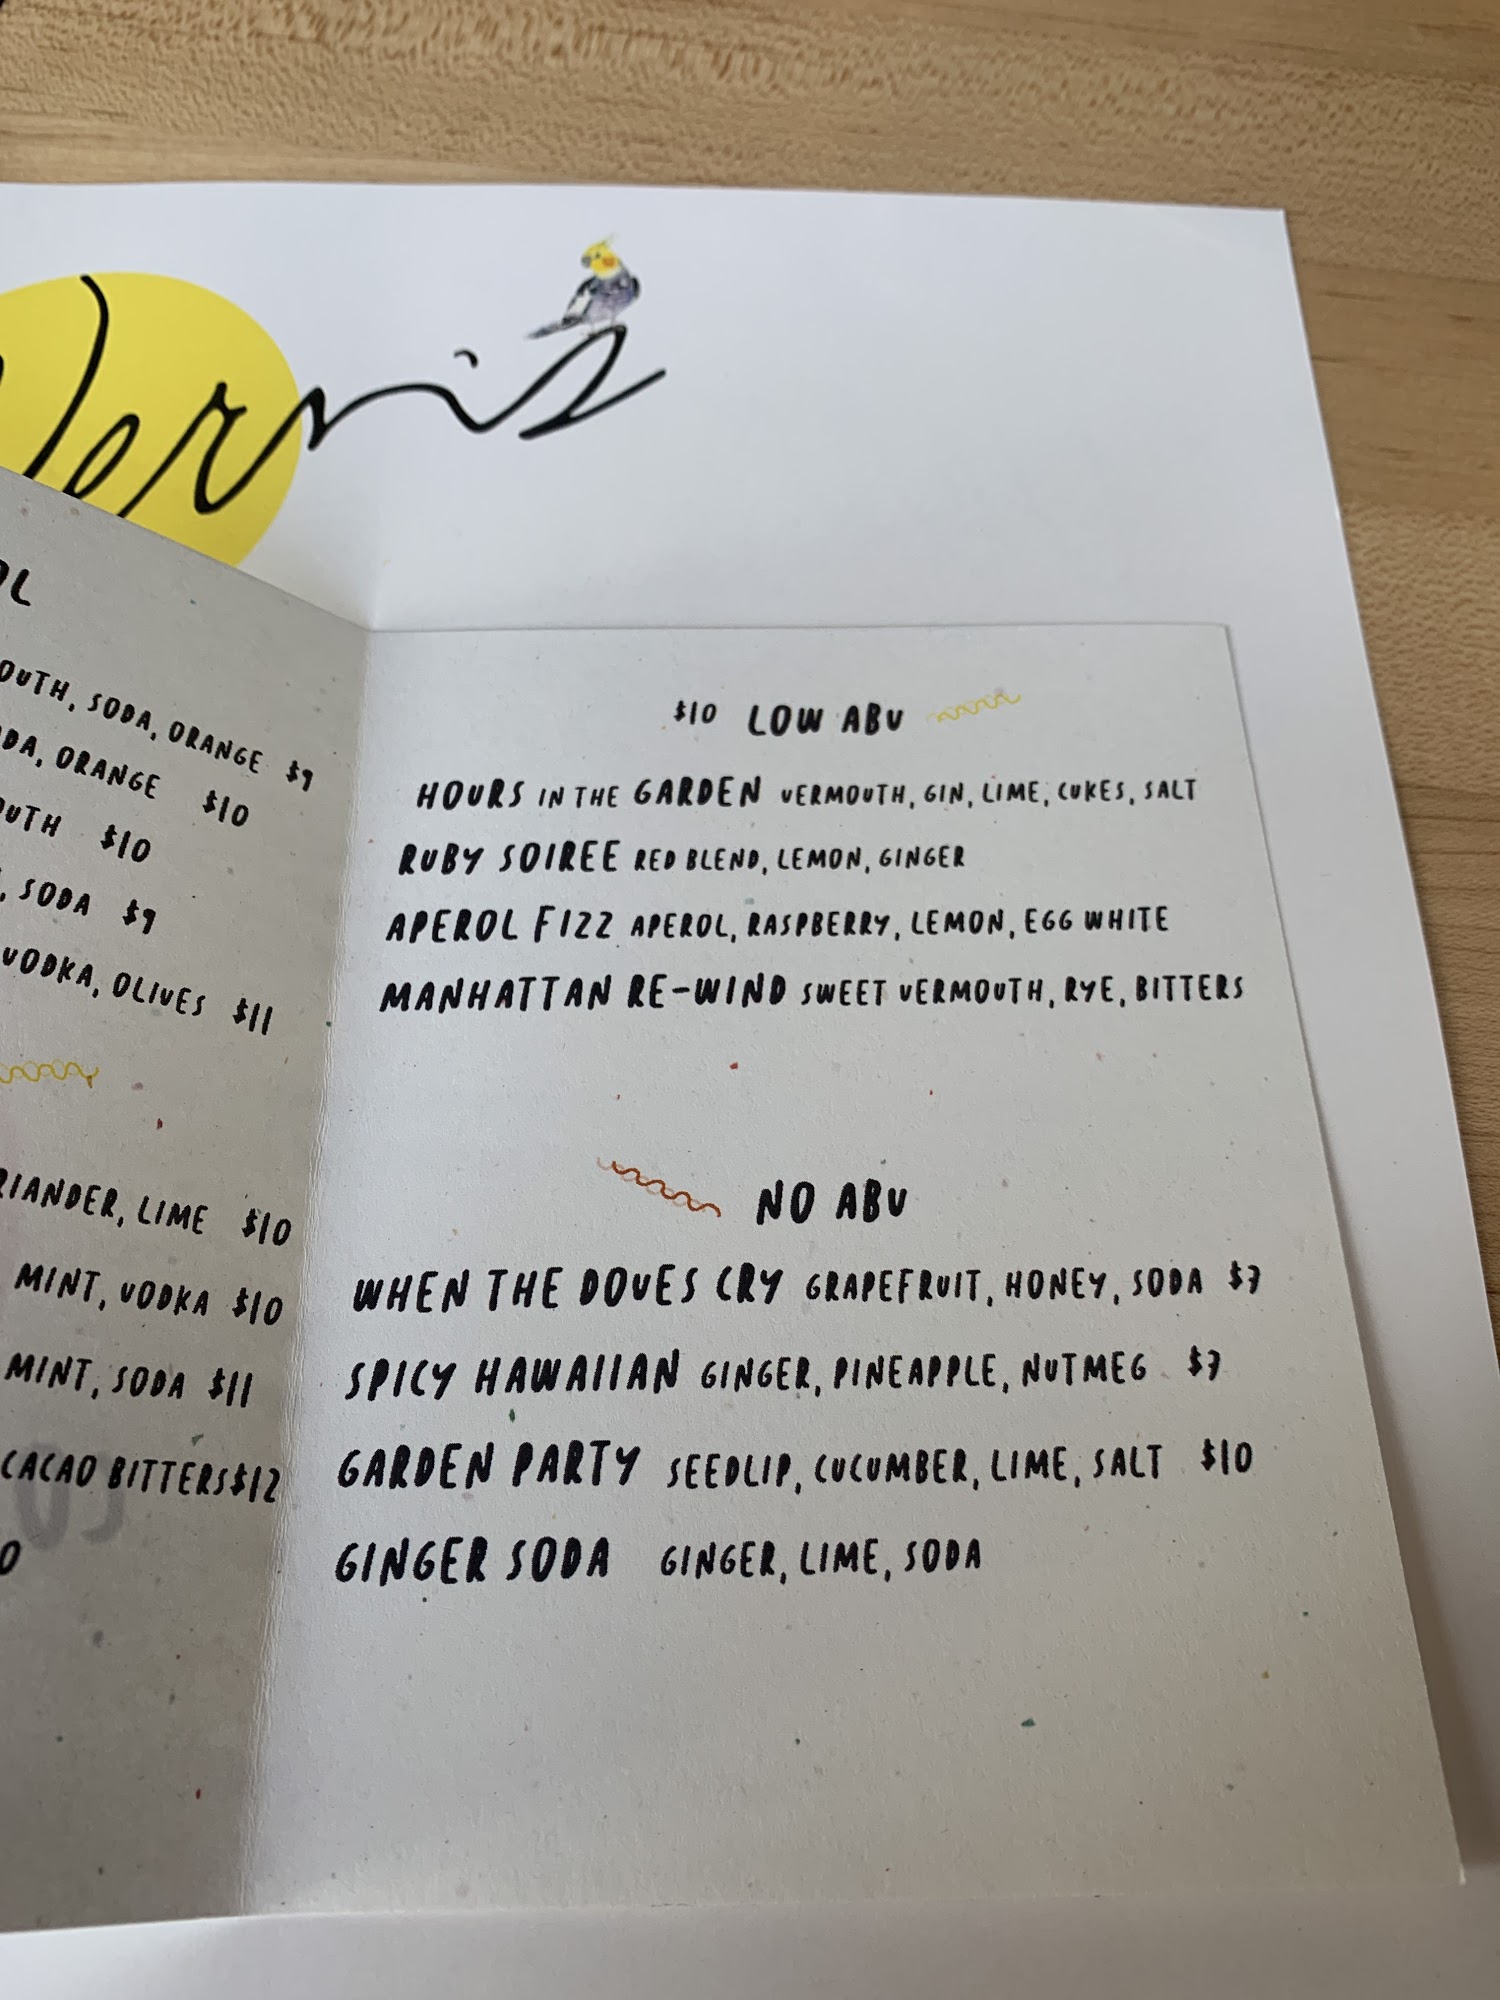 Vernis
OL
OUTH, SODA, ORANGE $9
DA, ORANGE $10
OUTH $10
, SODA $9
VODKA, OLIVES $11
RIANDER, LIME $10
MINT, VODKA $10
MINT, SODA $11
CACAO BITTERS $12
0
$10 LOW ABV
HOURS IN THE GARDEN VERMOUTH, GIN, LIME, CUKES, SALT
RUBY SOIREE RED BLEND, LEMON, GINGER
APEROL FIZZ APEROL, RASPBERRY, LEMON, EGG WHITE
MANHATTAN RE-WIND SWEET VERMOUTH, RYE, BITTERS
NO ABV
WHEN THE DOVES CRY GRAPEFRUIT, HONEY, SODA $7
SPICY HAWAIIAN GINGER, PINEAPPLE, NUTMEG $7
GARDEN PARTY SEEDLIP, CUCUMBER, LIME, SALT $10
GINGER SODA GINGER, LIME, SODA